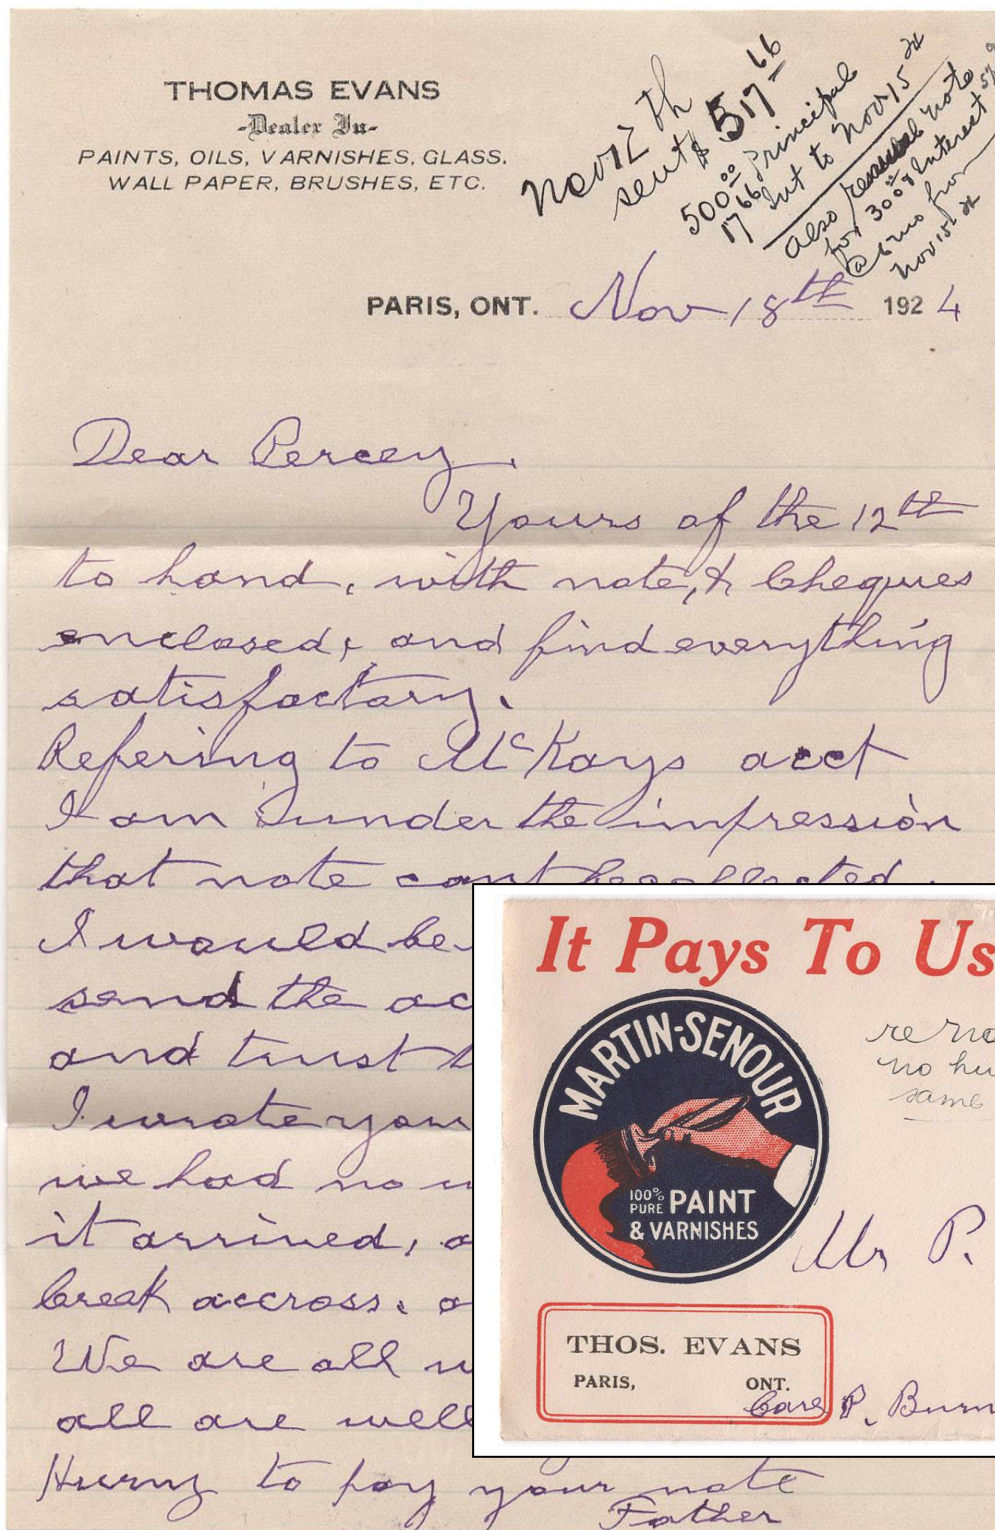 THOMAS EVANS
-Dealer In-
PAINTS, OILS, VARNISHES, GLASS.
WALL PAPER, BRUSHES, ETC.
Nov 12th
sent $517 66
500 00 Principal
17 66 Int to Nov 15 24
also renewal note
for 300 00 Interest
@ 6 mo from
Nov 15 24
PARIS, ONT. Nov 18th 1924
Dear Percey.
Yours of the 12th
to hand, with note, & Cheques
enclosed, and find everything
satisfactory.
Refering to McKays acct
I am under the impression
that note cant be collected.
I would be
send the ac
and trust
I wrote you
we had no
it arrived,
Creek accross.
We are all
all are well
Hurry to pay your note
Father
It Pays To Us
MARTIN-SENOUR
100% PURE PAINT
& VARNISHES
no hu
same
Mr P.
THOS. EVANS
PARIS, ONT.
Care P. Burn